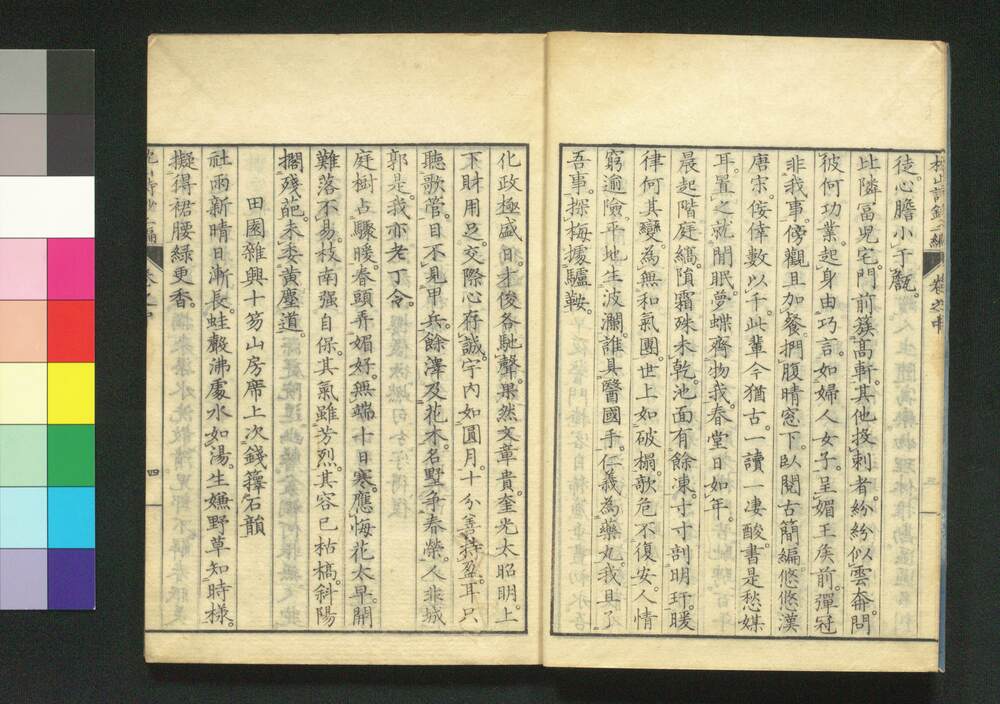 徒心膽小于甔
比隣冨児宅門前簇高軒其他投刺者紛紛似雲奔問
彼何功業起身由巧言如婦人女子呈媚王侯前彈冠
非我事傍觀且加餐捫腹晴窓下臥閱古簡編悠悠漢
唐宋侫倖數以千此輩今猶古一讀一凄酸書是愁媒
耳置之就閒眠夢蝶齊物我春堂日如年
晨起階庭縞隕霜殊未乾池面有餘凍寸寸剖明玕暖
律何其變為無和氣團世上如破榻欹危不復安人情
窮逾險平地生波瀾誰具醫國手仁義為藥丸我且了
吾事探梅據驢鞍
化政極盛日才俊各馳聲果然文章貴奎光太昭明上
下財用足交際心存誠宇內如圓月十分善持盈耳只
聽歌管目不見甲兵餘澤及花木名墅爭春榮人非城
郭是我亦老丁令
庭樹占驟暖春頭弄媚好無端十日寒應悔花太早開
難落不易枝南强自保其氣雖芳烈其容已枯槁斜陽
擱殘葩未委黄塵道
田園雜興十笏山房席上次錢籜石韻
社雨新晴日漸長蛙聲沸處水如湯生嫌野草知時樣
擬得裙腰綠更香
四